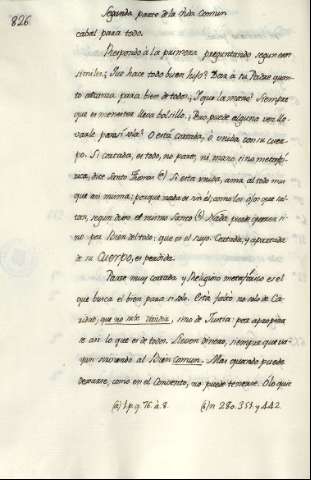 826
Segunda parte de la Vida comun
cabal para todo.
Respondo á la primera preguntando segun este
simile: ¿Que hace todo buen hijo? Dar á su Padre quan-
to alcanza para bien de todos. ¿Y que la mano? Siempre
que es menester lleva bolsillo. ¿Pero puede alguna vez lle-
varle para sí sola? O está cortada, ó unida con su cuer-
po. Si cortada, es todo, no parte, ni mano, sino metafo-
rica, dice Santo Thomas (a) Si esta unida, ama al todo mas
que asi misma; porque nada es sin él; como los ojos que es-
tan, segun dixo el mismo Santo (b) Nada puede querer si-
no por Bien del todo: que es el suyo. Cortada, y apartada
de su Cuerpo, es perdida.
Parte muy cortada y Religioso metaforico es el
que busca el bien para si solo. Este falta no solo de Ca-
ridad, que no solo, sino de Justicia: pues apropia
se asi lo que es de todos. Lleven dinero, siempre que va-
yan mirando al Bien comun. Mas quando pueda
dexarse, como en el Convento, no puede tenerse. O lo que
(a) 1. p. q. 76. a. 8. (b) n 280. 351. y 442.